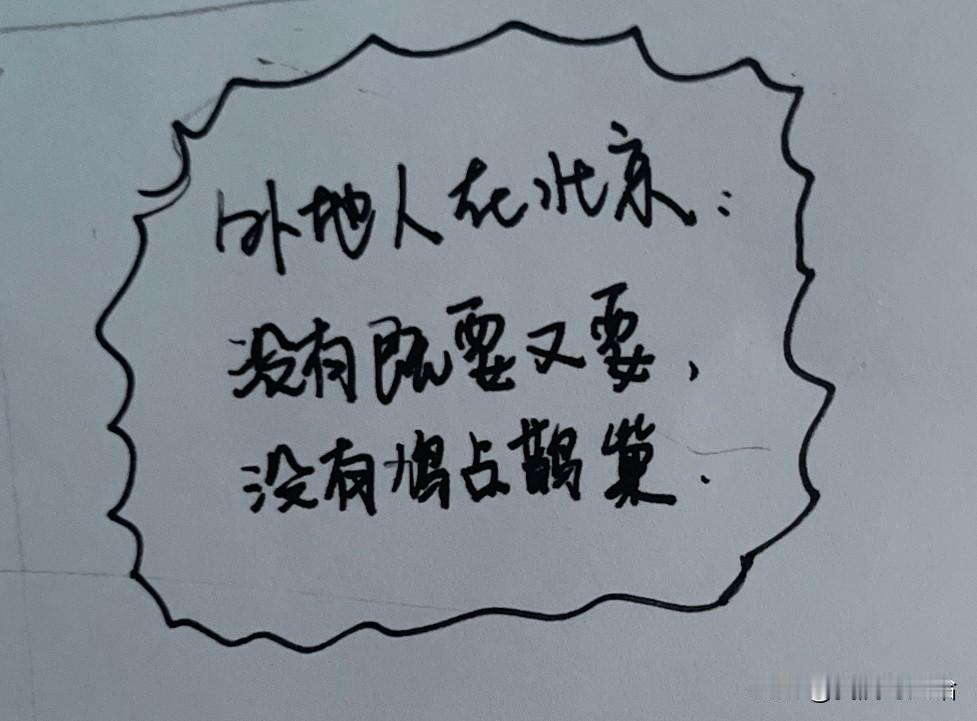 外地人在北京：
没有既要又要，
没有鸠占鹊巢.